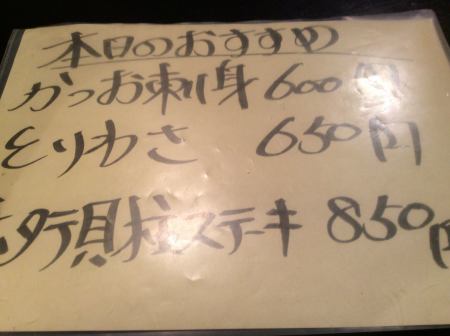 本日のおすすめ
かつお刺身 600円
とりわさ 650円
ホタテ貝柱ステーキ 850円